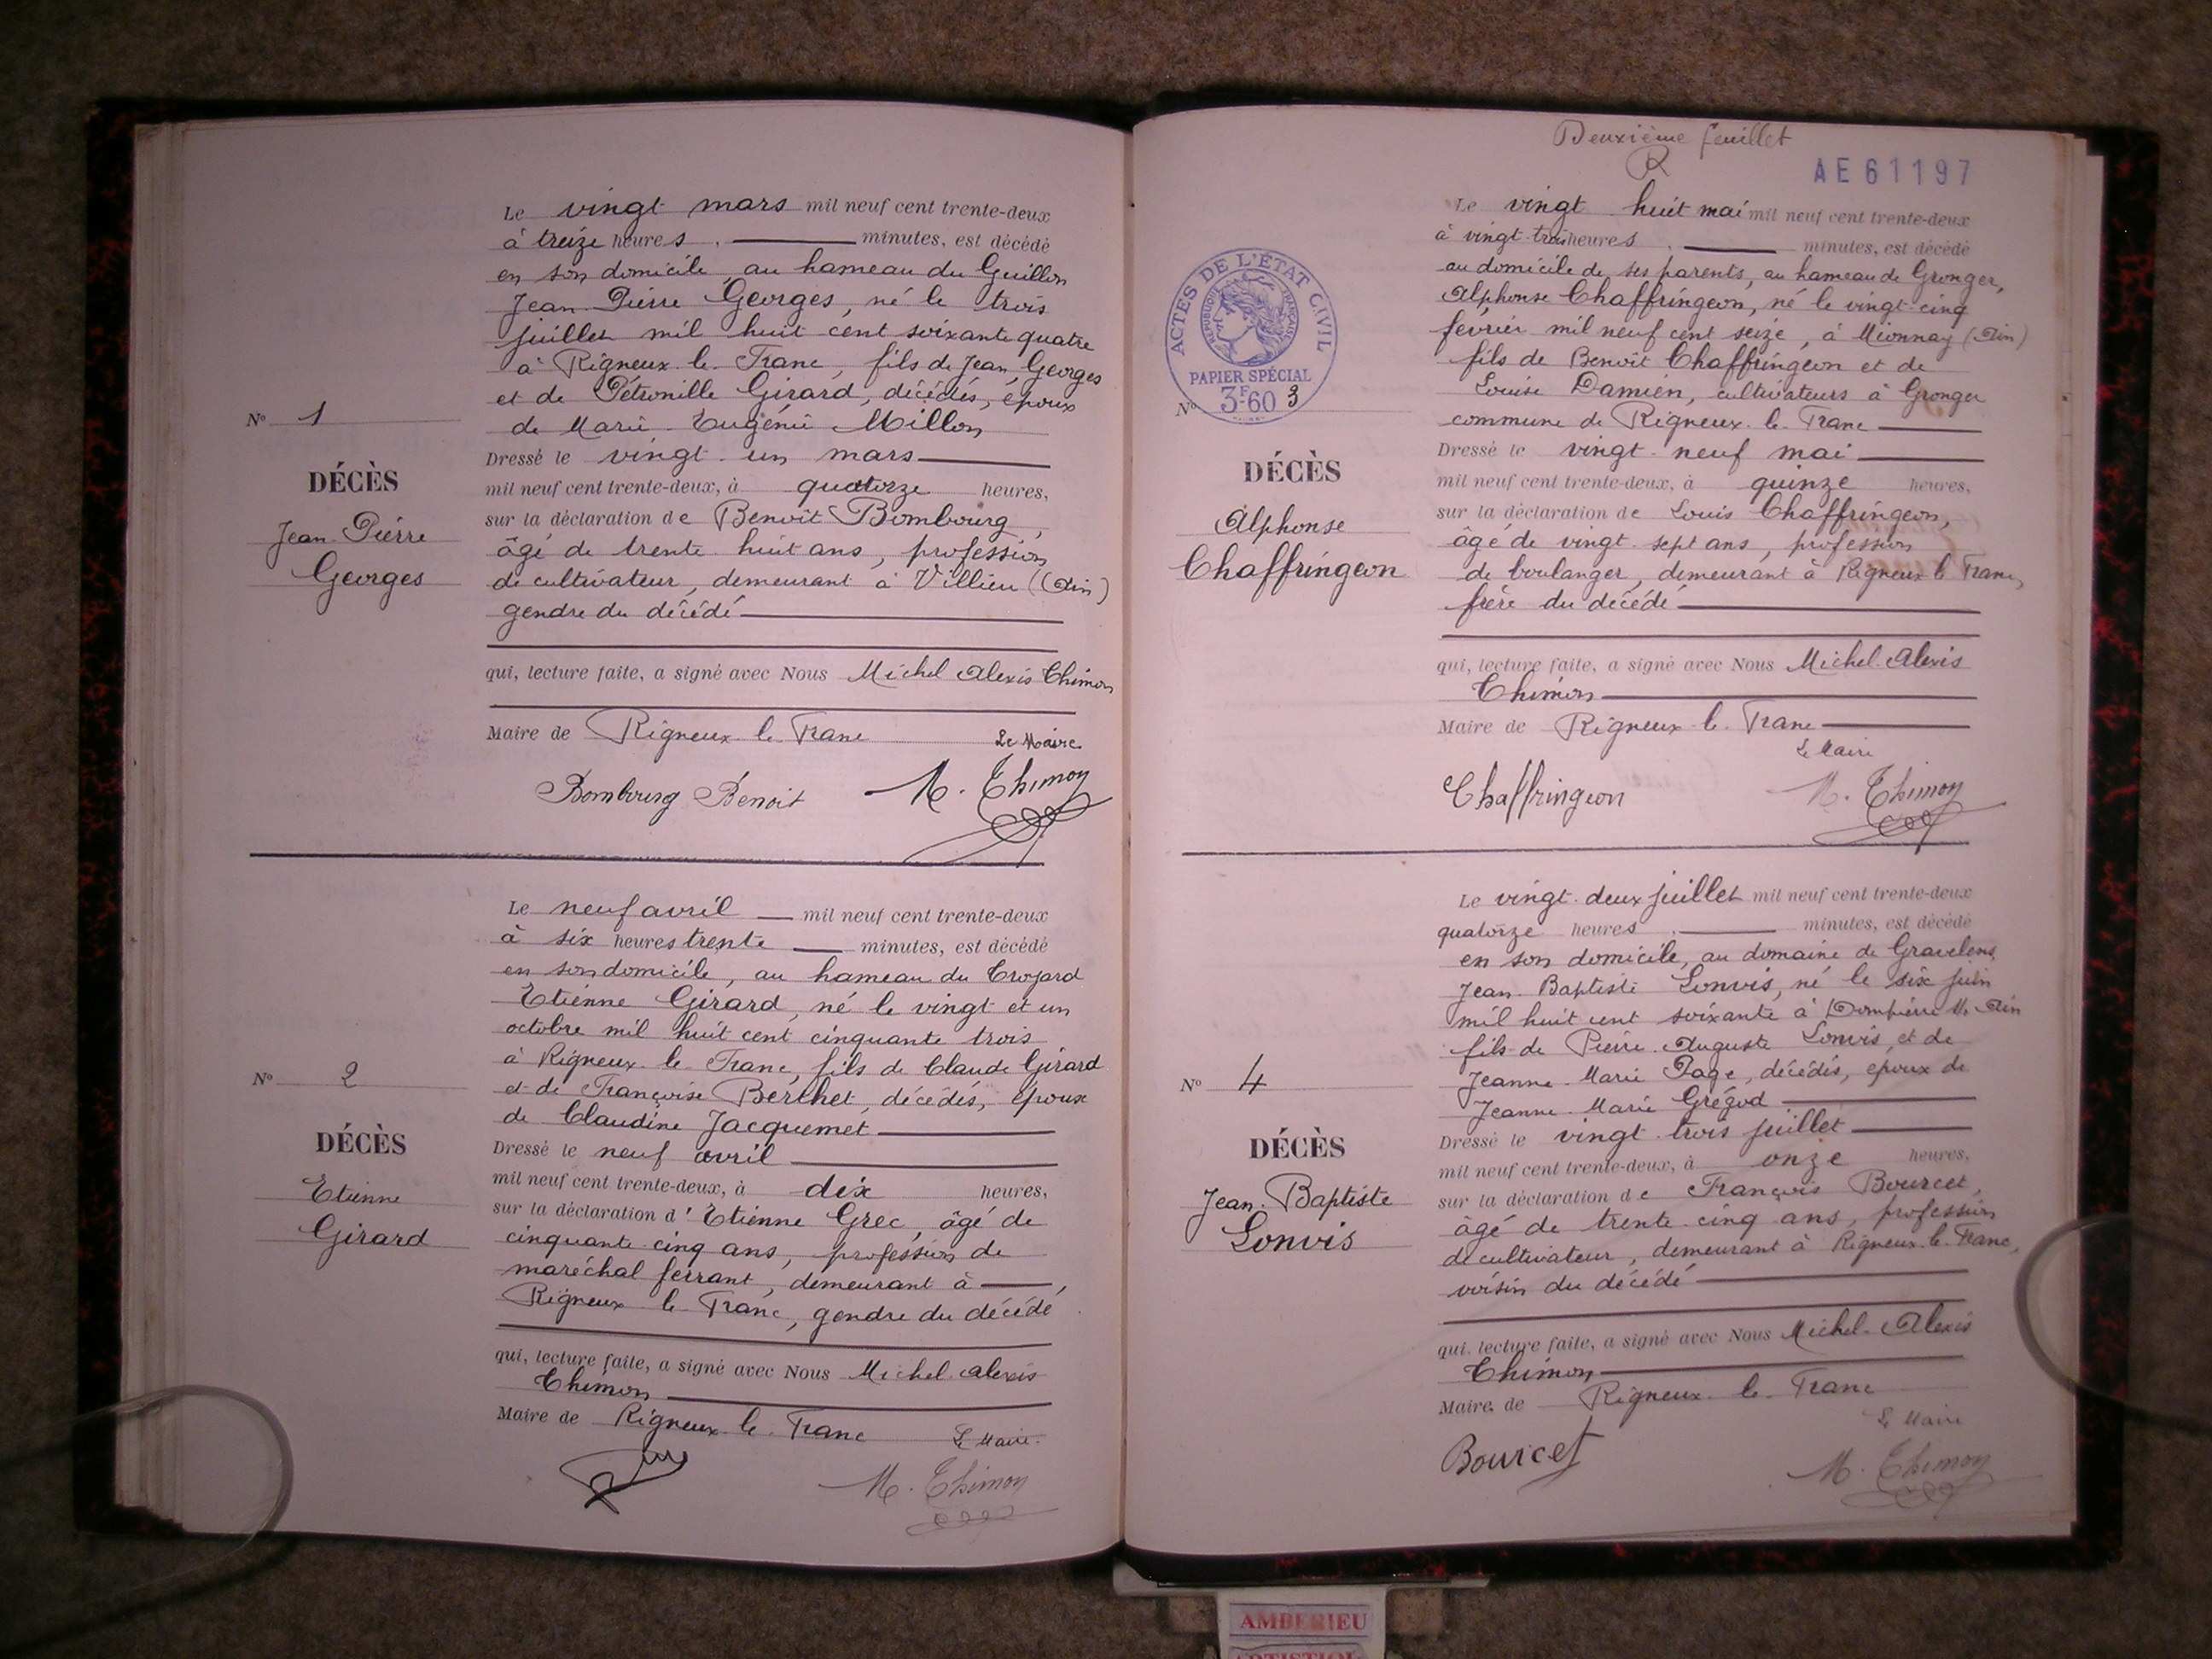 Le vingt mars mil neuf cent trente-deux
à treize heures . minutes, est décédé
en son domicile, au hameau du Guillon
Jean-Pierre Georges, né le trois
juillet mil huit cent soixante quatre
à Rigneux-le-Franc, fils de Jean Georges
et de Pétronille Girard, décédés, époux
de Marie-Eugénie Millon
Dressé le vingt-un mars
mil neuf cent trente-deux, à quatorze heures,
sur la déclaration de Benoît Bombourg,
âgé de trente-huit ans, profession
de cultivateur, demeurant à Villieu (Ain)
gendre du décédé
qui, lecture faite, a signé avec Nous Michel Alexis Thimon
Maire de Rigneux-le-Franc
Le Maire
Bombourg Benoit M. Thimon
N° 1
DÉCÈS
Jean-Pierre
Georges
Le neuf avril mil neuf cent trente-deux
à six heures trente minutes, est décédé
en son domicile, au hameau du Troyard
Etienne Girard, né le vingt et un
octobre mil huit cent cinquante trois
à Rigneux-le-Franc, fils de Claude Girard
et de Françoise Berthet, décédés, époux
de Claudine Jacquemet
Dressé le neuf avril
mil neuf cent trente-deux, à dix heures,
sur la déclaration d'Etienne Grec, âgé de
cinquante-cinq ans, profession de
maréchal ferrant, demeurant à ,
Rigneux-le-Franc, gendre du décédé
qui, lecture faite, a signé avec Nous Michel-Alexis
Thimon
Maire de Rigneux-le-Franc
Le Maire.
M. Thimon
N° 2
DÉCÈS
Etienne
Girard
Deuxième feuillet
AE 61197
Le vingt-huit mai mil neuf cent trente-deux
à vingt-trois heures . minutes, est décédé
au domicile de ses parents, au hameau de Gronger,
Alphonse Chaffringeon, né le vingt-cinq
février mil neuf cent seize, à Mionnay (Ain)
fils de Benoît Chaffringeon et de
Louise Damien, cultivateurs à Gronger
commune de Rigneux-le-Franc
Dressé le vingt-neuf mai
mil neuf cent trente-deux, à quinze heures,
sur la déclaration de Louis Chaffringeon,
âgé de vingt-sept ans, profession
de boulanger, demeurant à Rigneux-le-Franc,
frère du décédé
qui, lecture faite, a signé avec Nous Michel-Alexis
Thimon
Maire de Rigneux-le-Franc
Le Maire
Chaffringeon M. Thimon
ACTES DE L'ÉTAT CIVIL
RÉPUBLIQUE FRANÇAISE
PAPIER SPÉCIAL
3F60
N° 3
DÉCÈS
Alphonse
Chaffringeon
Le vingt-deux juillet mil neuf cent trente-deux
quatorze heures . minutes, est décédé
en son domicile, au domaine de Gravelens
Jean-Baptiste Lonvis, né le six juin
mil huit cent soixante à Ain
fils de Pierre-Auguste Lonvis, et de
Jeanne-Marie Page, décédés, époux de
Jeanne-Marie Grégod
Dressé le vingt-trois juillet
mil neuf cent trente-deux, à onze heures,
sur la déclaration de François Bourcet,
âgé de trente-cinq ans, profession
de cultivateur, demeurant à Rigneux-le-Franc,
voisin du décédé
qui, lecture faite, a signé avec Nous Michel-Alexis
Thimon
Maire de Rigneux-le-Franc
Le Maire
Bourcet M. Thimon
N° 4
DÉCÈS
Jean-Baptiste
Lonvis
AMBERIEU